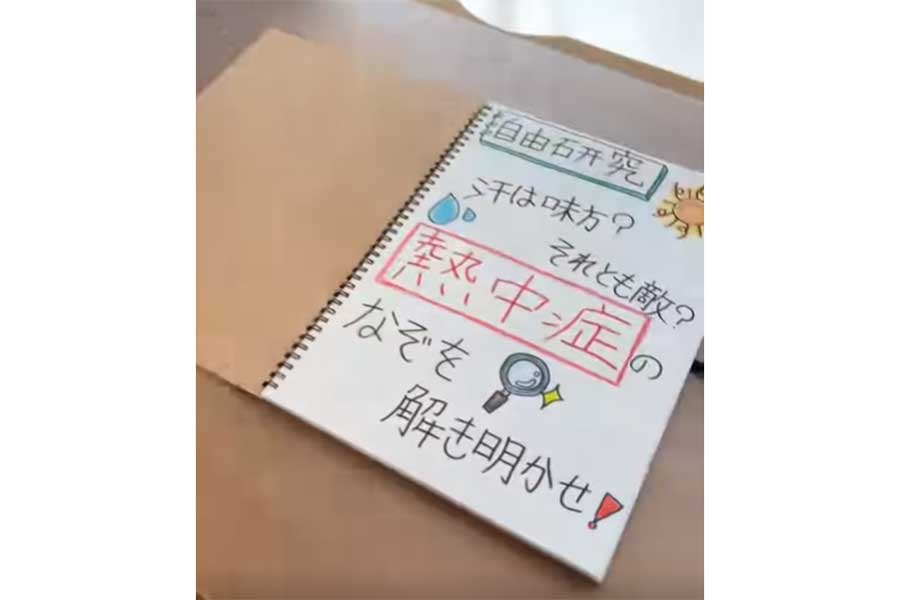 自由研究
汗は味方?
それとも敵?
熱中症の
なぞを
解き明かせ!